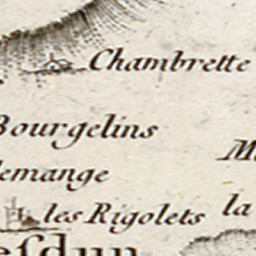 Chambrette
Bourgelins
lemange
les Rigolets
la
esdun